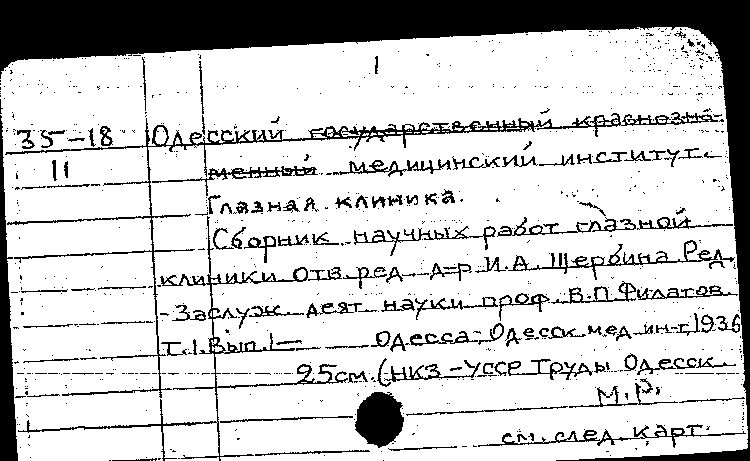 1
35-18 Одесский государственный краснозна-
11 менный медицинский институт.
Глазная клиника.
Сборник научных работ глазной
клиники Отв. ред. д-р И.А. Щербина Ред.
- Заслуж. деят. науки проф. В.П. Филатов.
Т.1. Вып. 1— Одесса, Одесск. мед. ин-т, 1936
25см. (НКЗ - УССР Труды Одесск.
М.Р.
см. след. карт.